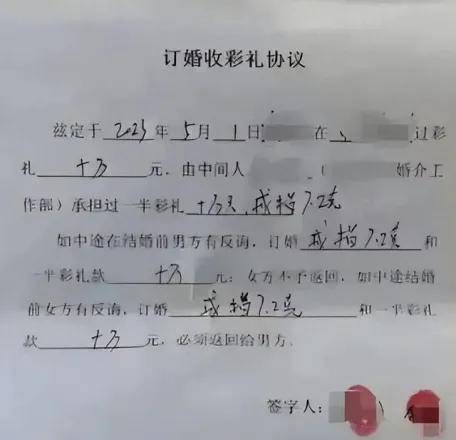 订婚收彩礼协议
兹定于 2023 年 5 月 1 日 在 过彩
礼 十万 元，由中间人 （ 婚介工
作部）承担过一半彩礼 十万元，戒指7.2克
如中途在结婚前男方有反诲，订婚 戒指7.2克 和
一半彩礼款 十万 元；女方不予返回，如中途结婚
前女方有反诲，订婚 戒指7.2克 和一半彩礼
款 十万 元，必须返回给男方。
签字人：